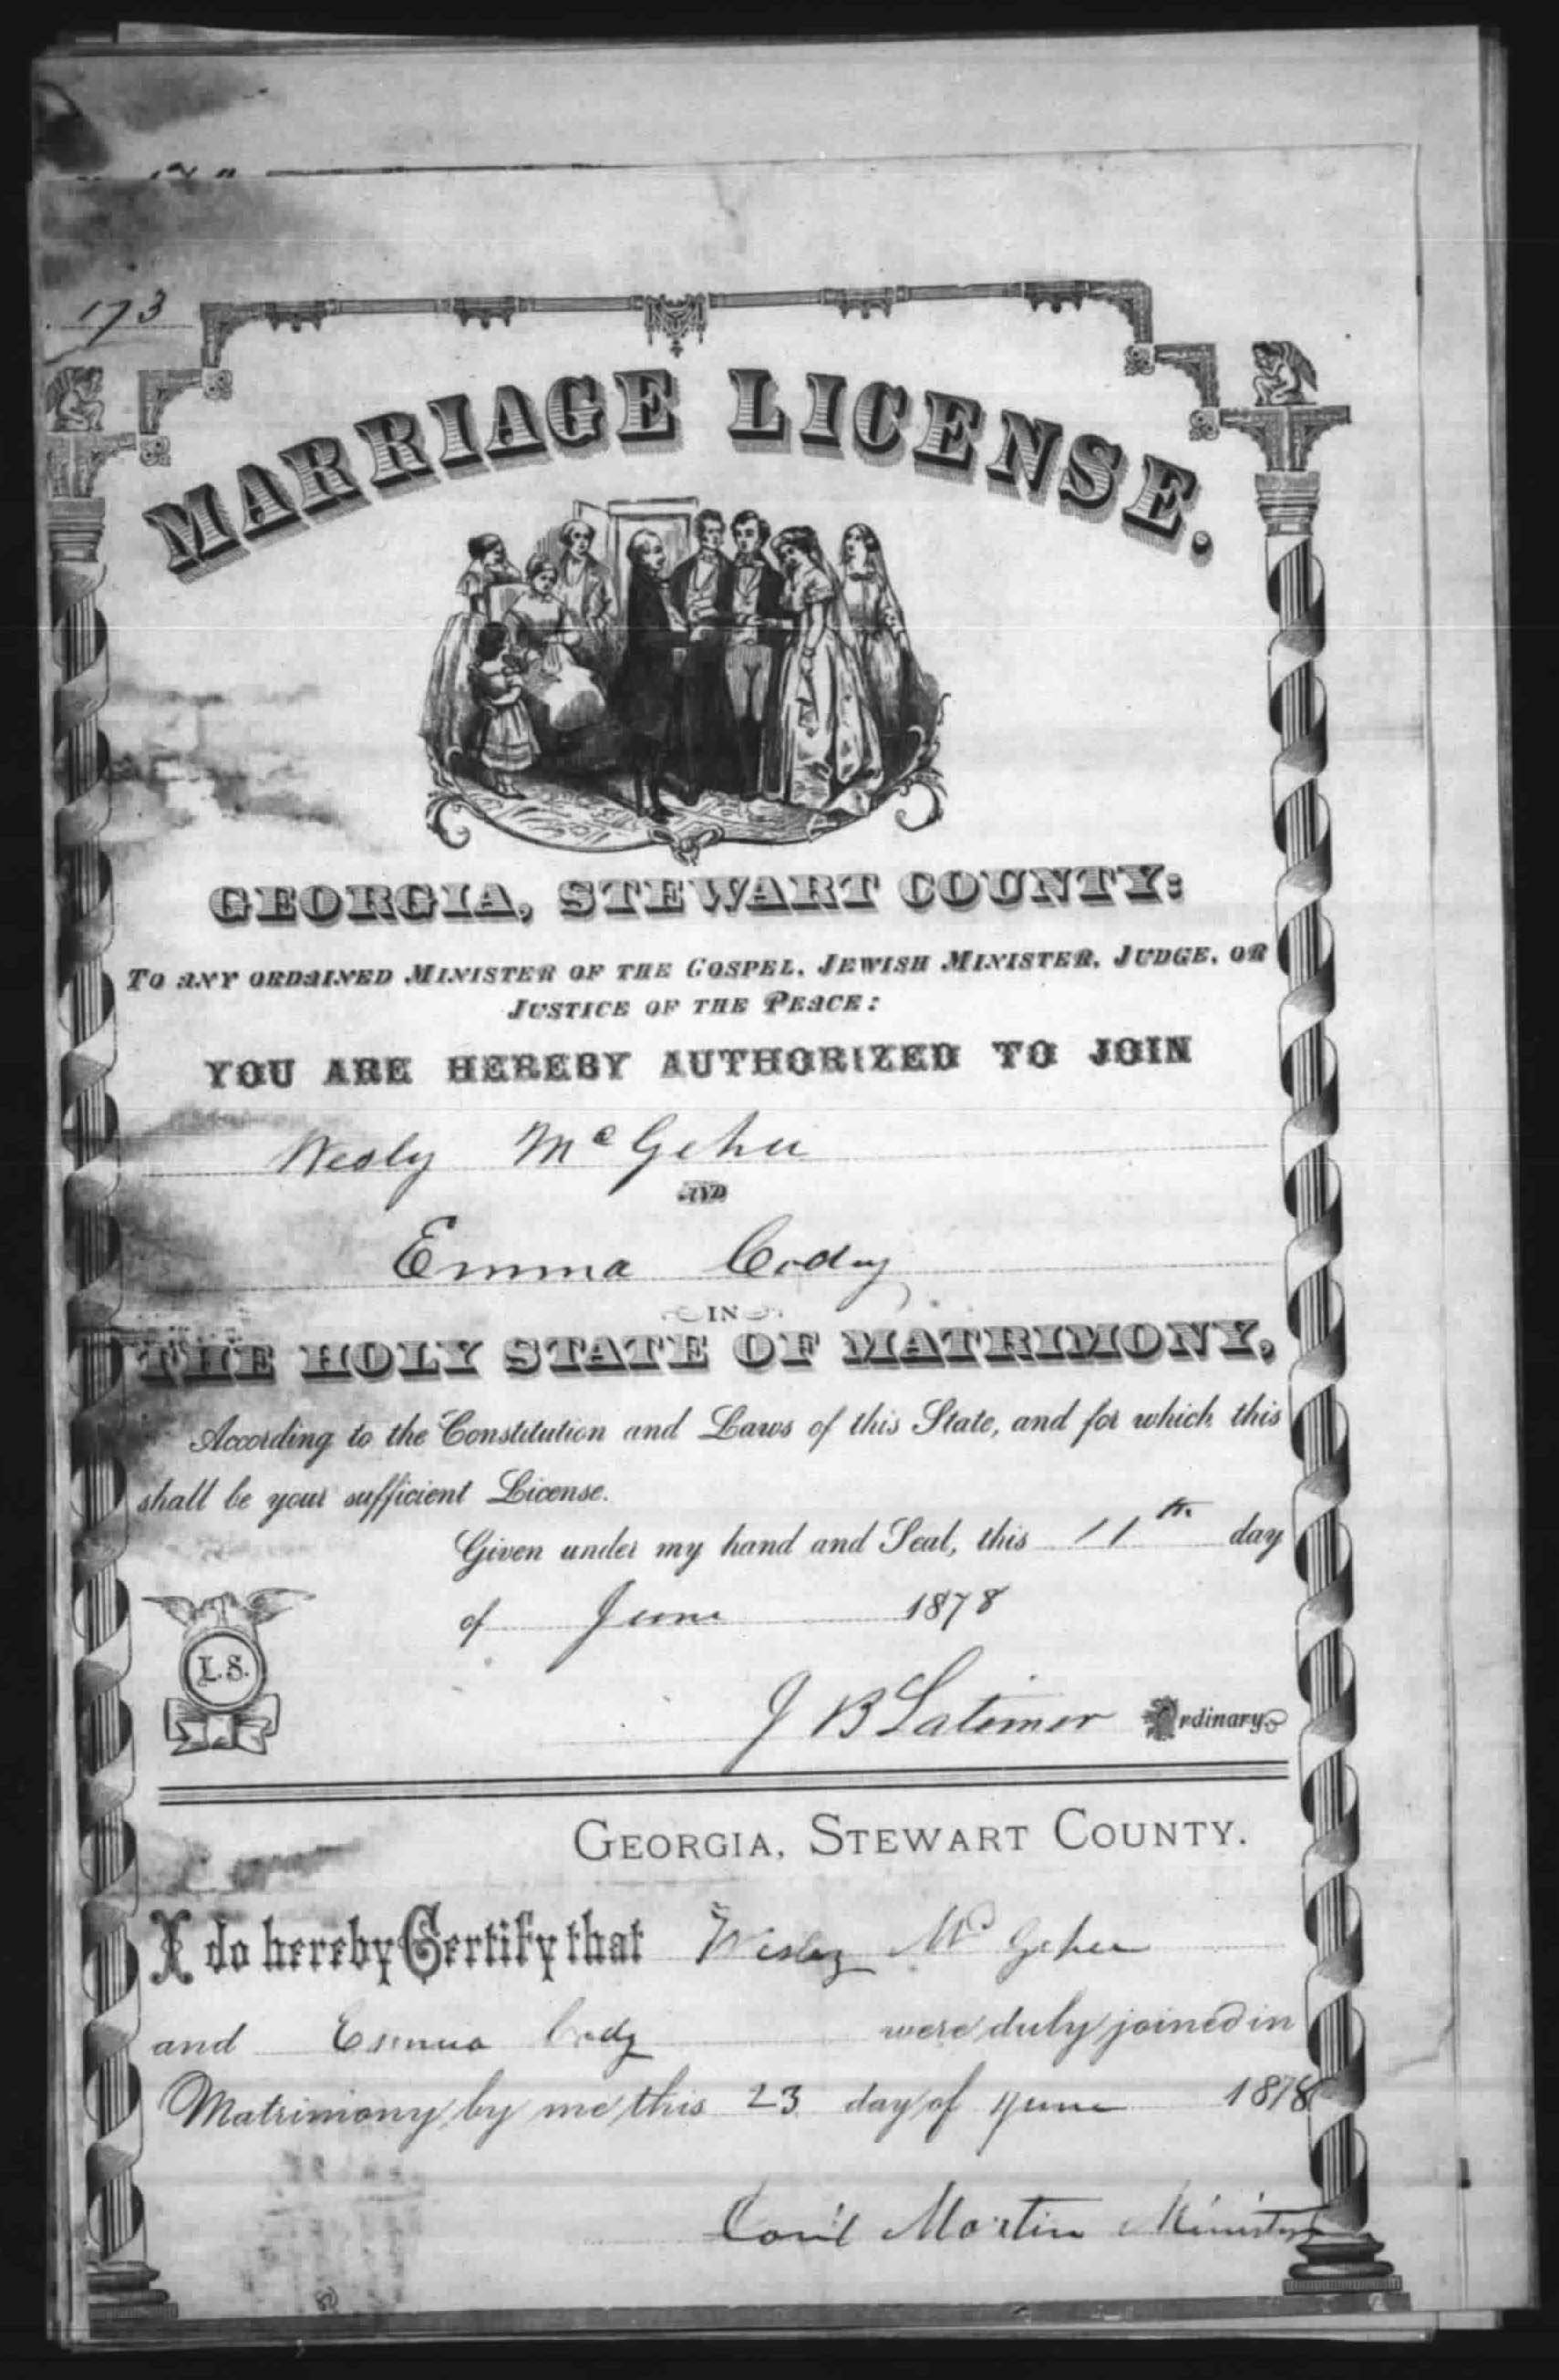 173
MARRIAGE LICENSE.
GEORGIA, STEWART COUNTY:
TO ANY ORDAINED MINISTER OF THE GOSPEL, JEWISH MINISTER, JUDGE, OR
JUSTICE OF THE PEACE:
YOU ARE HEREBY AUTHORIZED TO JOIN
Wesly McGehee
AND
Emma Cody
IN
THE HOLY STATE OF MATRIMONY,
According to the Constitution and Laws of this State, and for which this
shall be your sufficient License.
Given under my hand and Seal, this 11th day
of June 1878
L.S.
J B Latimer Ordinary
GEORGIA, STEWART COUNTY.
I do hereby Certify that Wesley Mc Gehee
and Emma Cody were duly joined in
Matrimony by me this 23 day of June 1878
Martin Minister